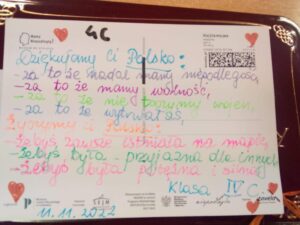 4C
Dziękujemy Ci Polsko:
- za to że nadal mamy niepodległość
- za to że mamy wolność,
- za to że nie toczymy wojen,
- za to że wytrwałaś
Życzymy Ci Polsko:
- Żebyś zawsze istniała na mapie,
- Żebyś była przyjazna dla innych
- Żebyś była potężna i silna
Klasa IV C
11.11.2022